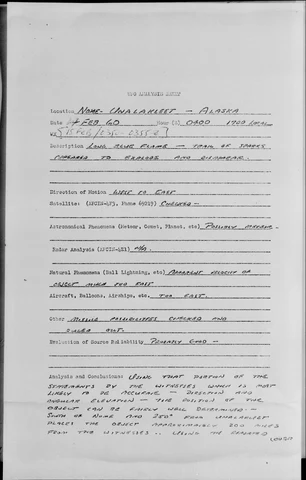 UFO ANALYSIS SHEET
Location NOME - UNALAKLEET - ALASKA
Date 14 FEB 60 Hour (Z) 0400 1700 LOCAL
Description LONG BLUE FLAME - TRAIL OF SPARKS
APPEARED TO EXPLODE AND DISAPPEAR.
Direction of Motion WEST TO EAST
Satellite: (AFCIN-4E3, Phone 69219) CHECKED -
Astronomical Phenomena (Meteor, Comet, Planet, etc) POSSIBLY METEOR
Radar Analysis (AFCIN-4E1) N/A
Natural Phenomena (Ball Lightning, etc) APPARENT VELOCITY OF
OBJECT MUCH TOO FAST
Aircraft, Balloons, Airships, etc. TOO FAST.
Other MISSILE POSSIBILITIES CHECKED AND
RULED OUT.
Evaluation of Source Reliability PROBABLY GOOD -
Analysis and Conclusions: USING THAT PORTION OF THE
STATEMENTS BY THE WITNESSES WHICH IS MOST
LIKELY TO BE ACCURATE - DIRECTION AND
ANGULAR ELEVATION - THE POSITION OF THE
OBJECT CAN BE FAIRLY WELL DETERMINED -
SOUTH OF NOME AND 250° FROM UNALAKLEET
PLACES THE OBJECT APPROXIMATELY 200 MILES
FROM THE WITNESSES. USING THE REPORTED